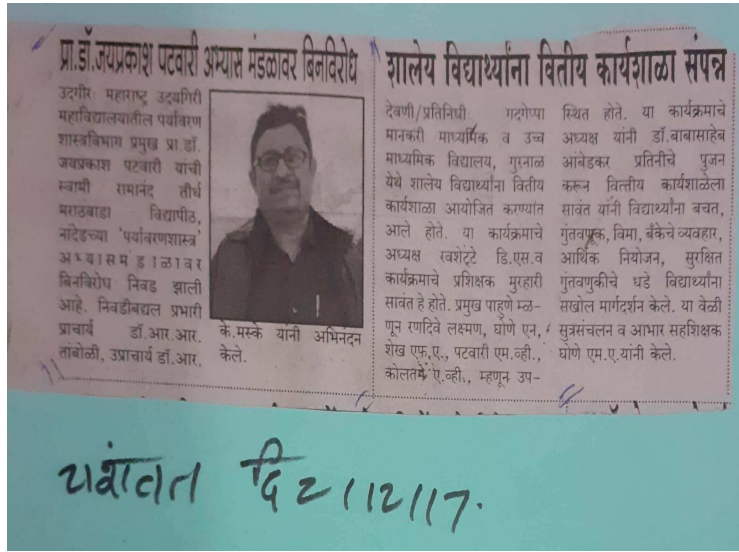 प्रा.डॉ.जयप्रकाश पटवारी अभ्यास मंडळावर बिनविरोध
उदगीर: महाराष्ट्र उदयगिरी
महाविद्यालयातील पर्यावरण
शास्त्रविभाग प्रमुख प्रा.डॉ.
जयप्रकाश पटवारी यांची
स्वामी रामानंद तीर्थ
मराठवाडा विद्यापीठ,
नांदेडच्या 'पर्यावरणशास्त्र'
अभ्यासमंडाळावर
बिनविरोध निवड झाली
आहे. निवडीबद्यल प्रभारी
प्राचार्य डॉ.आर.आर.
तांबोळी, उप्राचार्य डॉ.आर.
के.मस्के यांनी अभिनंदन
केले.
शालेय विद्यार्थ्यांना वितीय कार्यशाळा संपन्न
देवणी/प्रतिनिधी: गदगेप्पा
मानकरी माध्यमिक व उच्च
माध्यमिक विद्यालय, गुरनाळ
येथे शालेय विद्यार्थ्यांना वितीय
कार्यशाळा आयोजित करण्यांत
आले होते. या कार्यक्रमाचे
अध्यक्ष रवशेट्टे डि.एस.व
कार्यक्रमाचे प्रशिक्षक मुरहारी
सावंत हे होते. प्रमुख पाहुणे म्ळ-
णून रणदिवे लक्ष्मण, घोणे एन,
शेख एफ.ए., पटवारी एम.व्ही.,
कोलतमे ए.व्ही., म्हणून उप-
स्थित होते. या कार्यक्रमाचे
अध्यक्ष यांनी डॉ.बाबासाहेब
आंबेडकर प्रतिनीचे पुजन
करून वित्तीय कार्यशळेला
सावंत यांनी विद्यार्थ्यांना बचत,
गुंतवणूक, विमा, बँकेचे व्यवहार,
आर्थिक नियोजन, सुरक्षित
गुंतवणुकीचे धडे विद्यार्थ्यांना
सखोल मार्गदर्शन केले. या वेळी
सुत्रसंचलन व आभार सहशिक्षक
घोणे एम.ए.यांनी केले.
यशवंत दि 2/12/17.